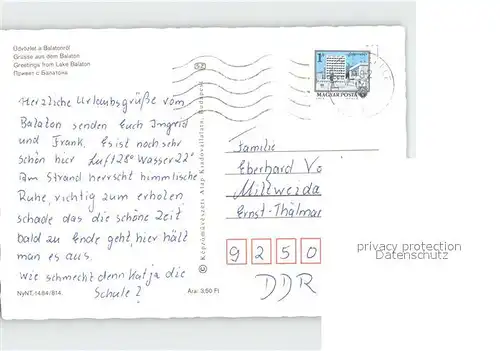 Üdvözlet a Balatonról
Grüsse aus dem Balaton
Greetings from Lake Balaton
Привет с Балатона
Herzliche Urlaubsgrüße vom
Balaton senden Euch Ingrid
und Frank. Es ist noch sehr
schön hier Luft 28° Wasser 22°
Am Strand herrscht himmlische
Ruhe, richtig zum erholen
schade das die schöne Zeit
bald zu Ende geht, hier hält
man es aus.
Wie schmeckt denn Katja die
Schule?
NyNT.-1484/814.
Ára: 3,60 Ft
Képzőművészeti Alap Kiadóvállalata, Budapest
1 Ft
MAGYAR POSTA
Familie
Eberhard Vo
Mittweida
Ernst-Thälmar
9250
DDR
privacy protection
Datenschutz